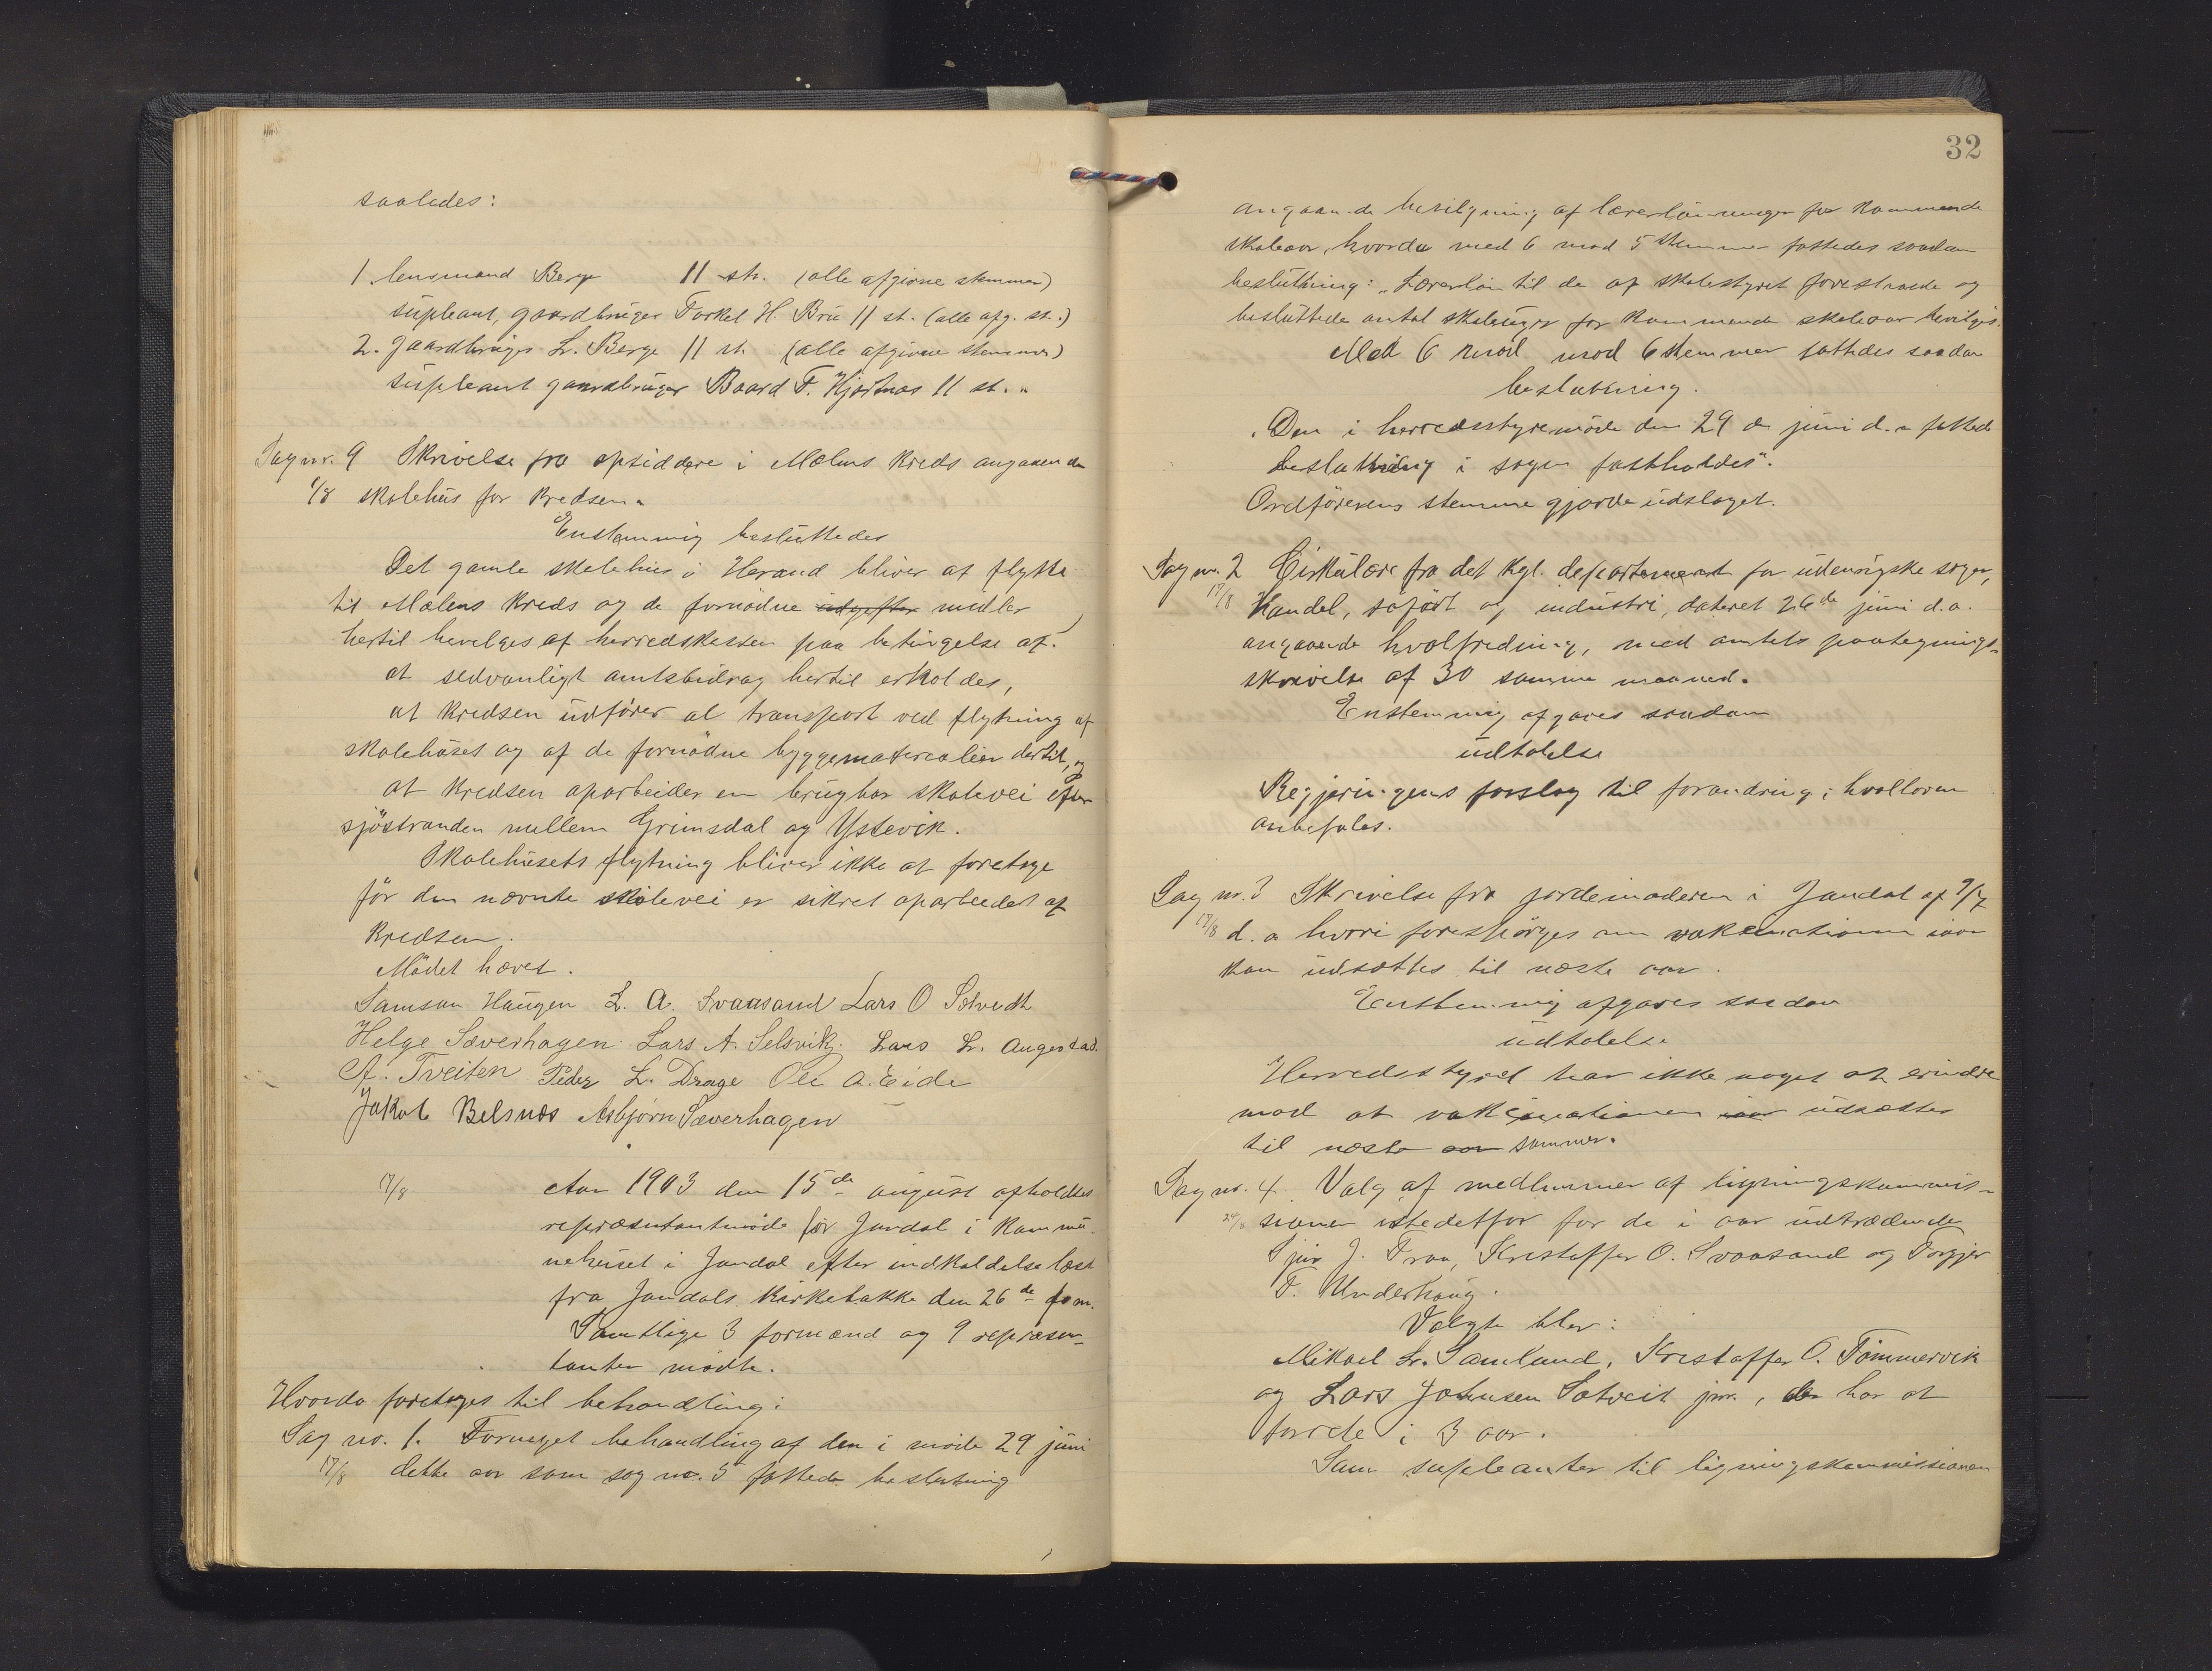 saaledes:
1. lensmand Berge 11 st. (alle afgivne stemmer)
supleant, gaardbruger Torkel H. Bru 11 st. (alle afg. st.)
2. gaardbruger L. Berge 11 st. (alle afgivne stemmer)
supleant gaardbruger Baard T. Hjartnæs 11 st. "
Sag nr. 9 Skrivelse fra opsiddere i Mælens kreds angaaende
1/8 skolehus for kredsen.
Enstemmig besluttedes
Det gamle skolehus i Herand bliver at flytte
til Mælens kreds og de fornødne udgifter midler
hertil bevilges af herredskassen paa betingelse af:
at sedvanligt amtsbidrag hertil erholdes,
at kredsen udfører al transport ved flytning af
skolehuset og af de fornødne byggematerialier dertil, og
at kredsen oparbeider en brugbar skolevei efter
sjøstranden mellem Grimsdal og Ystevik.
Skolehusets flytning bliver ikke at foretage
før den nævnte skolevei er sikret oparbeidet af
kredsen.
Mødet hævet.
Samson Haugen L. A. Svaasand Lars O Solvedt
Helge Sæverhagen. Lars A. Selsvik. Lars L. Augestad.
A. Tveiten Peder L. Drage Ole A. Eide
Jakob Belsnes Asbjørn Sæverhagen
17/8 Aar 1903 den 15de august afholdtes
repræsentantmøde for Jondal i kommu-
nehuset i Jondal efter indkaldelse læst
fra Jondals kirkebakke den 26de f. m.
Samtlige 3 formænd og 9 repræsen-
tanter mødte.
Hvorda foretoges til behandling:
Sag no. 1. Fornyet behandling af den i møde 29 juni
17/8 dette aar som sag no. 5 fattede beslutning
32
angaaende bevilgning af lærerlønninger for kommende
skoleaar, hvorda med 6 mod 5 stemmer fattedes saadan
beslutning: "Lærerløn til de af skolestyret foreslaaede og
besluttede antal skoleuger for kommende skoleaar bevilges.
Med 6 mod 6 stemmer fattedes saadan
beslutning.
"Den i herredsstyremøde den 29 de juni d. a fattede
beslutning i sagen fastholdes".
Ordførerens stemme gjorde udslaget.
Sag nr. 2 Cirkulære fra det kgl. departement for udenrigske sager,
17/8 Handel, søfart og industri, dateret 26de juni d. a.
angaaende hvalfredning, med amtets paategnings-
skrivelse af 30 samme maaned.
Enstemmig afgaves saadan
udtalelse
Regjeringens forslag til forandring i hvalloven
anbefales.
Sag nr. 3 Skrivelse fra jordemoderen i Jondal af 9/7
17/8 d. a hvori forespørges om vakcinationen iaar
kan udsættes til næste aar.
Enstemmig afgaves saadan
udtalelse
Herredsstyret har ikke noget at erindre
mod at vakcinationen iaar udsættes
til næste aar sommer.
Sag nr. 4. Valg af medlemmer af ligningskommis-
sionen istedetfor for de i aar udtrædende
J. Traa, Kristoffer O. Svaasand og Torgjer
T. Underhaug.
Valgte blev:
Mikael L. Samland, Kristoffer O. Tømmervik
og Lars Johnsen Solveit jnr., der har at
forrette i 3 aar.
Som supleanter til ligningskommissionen